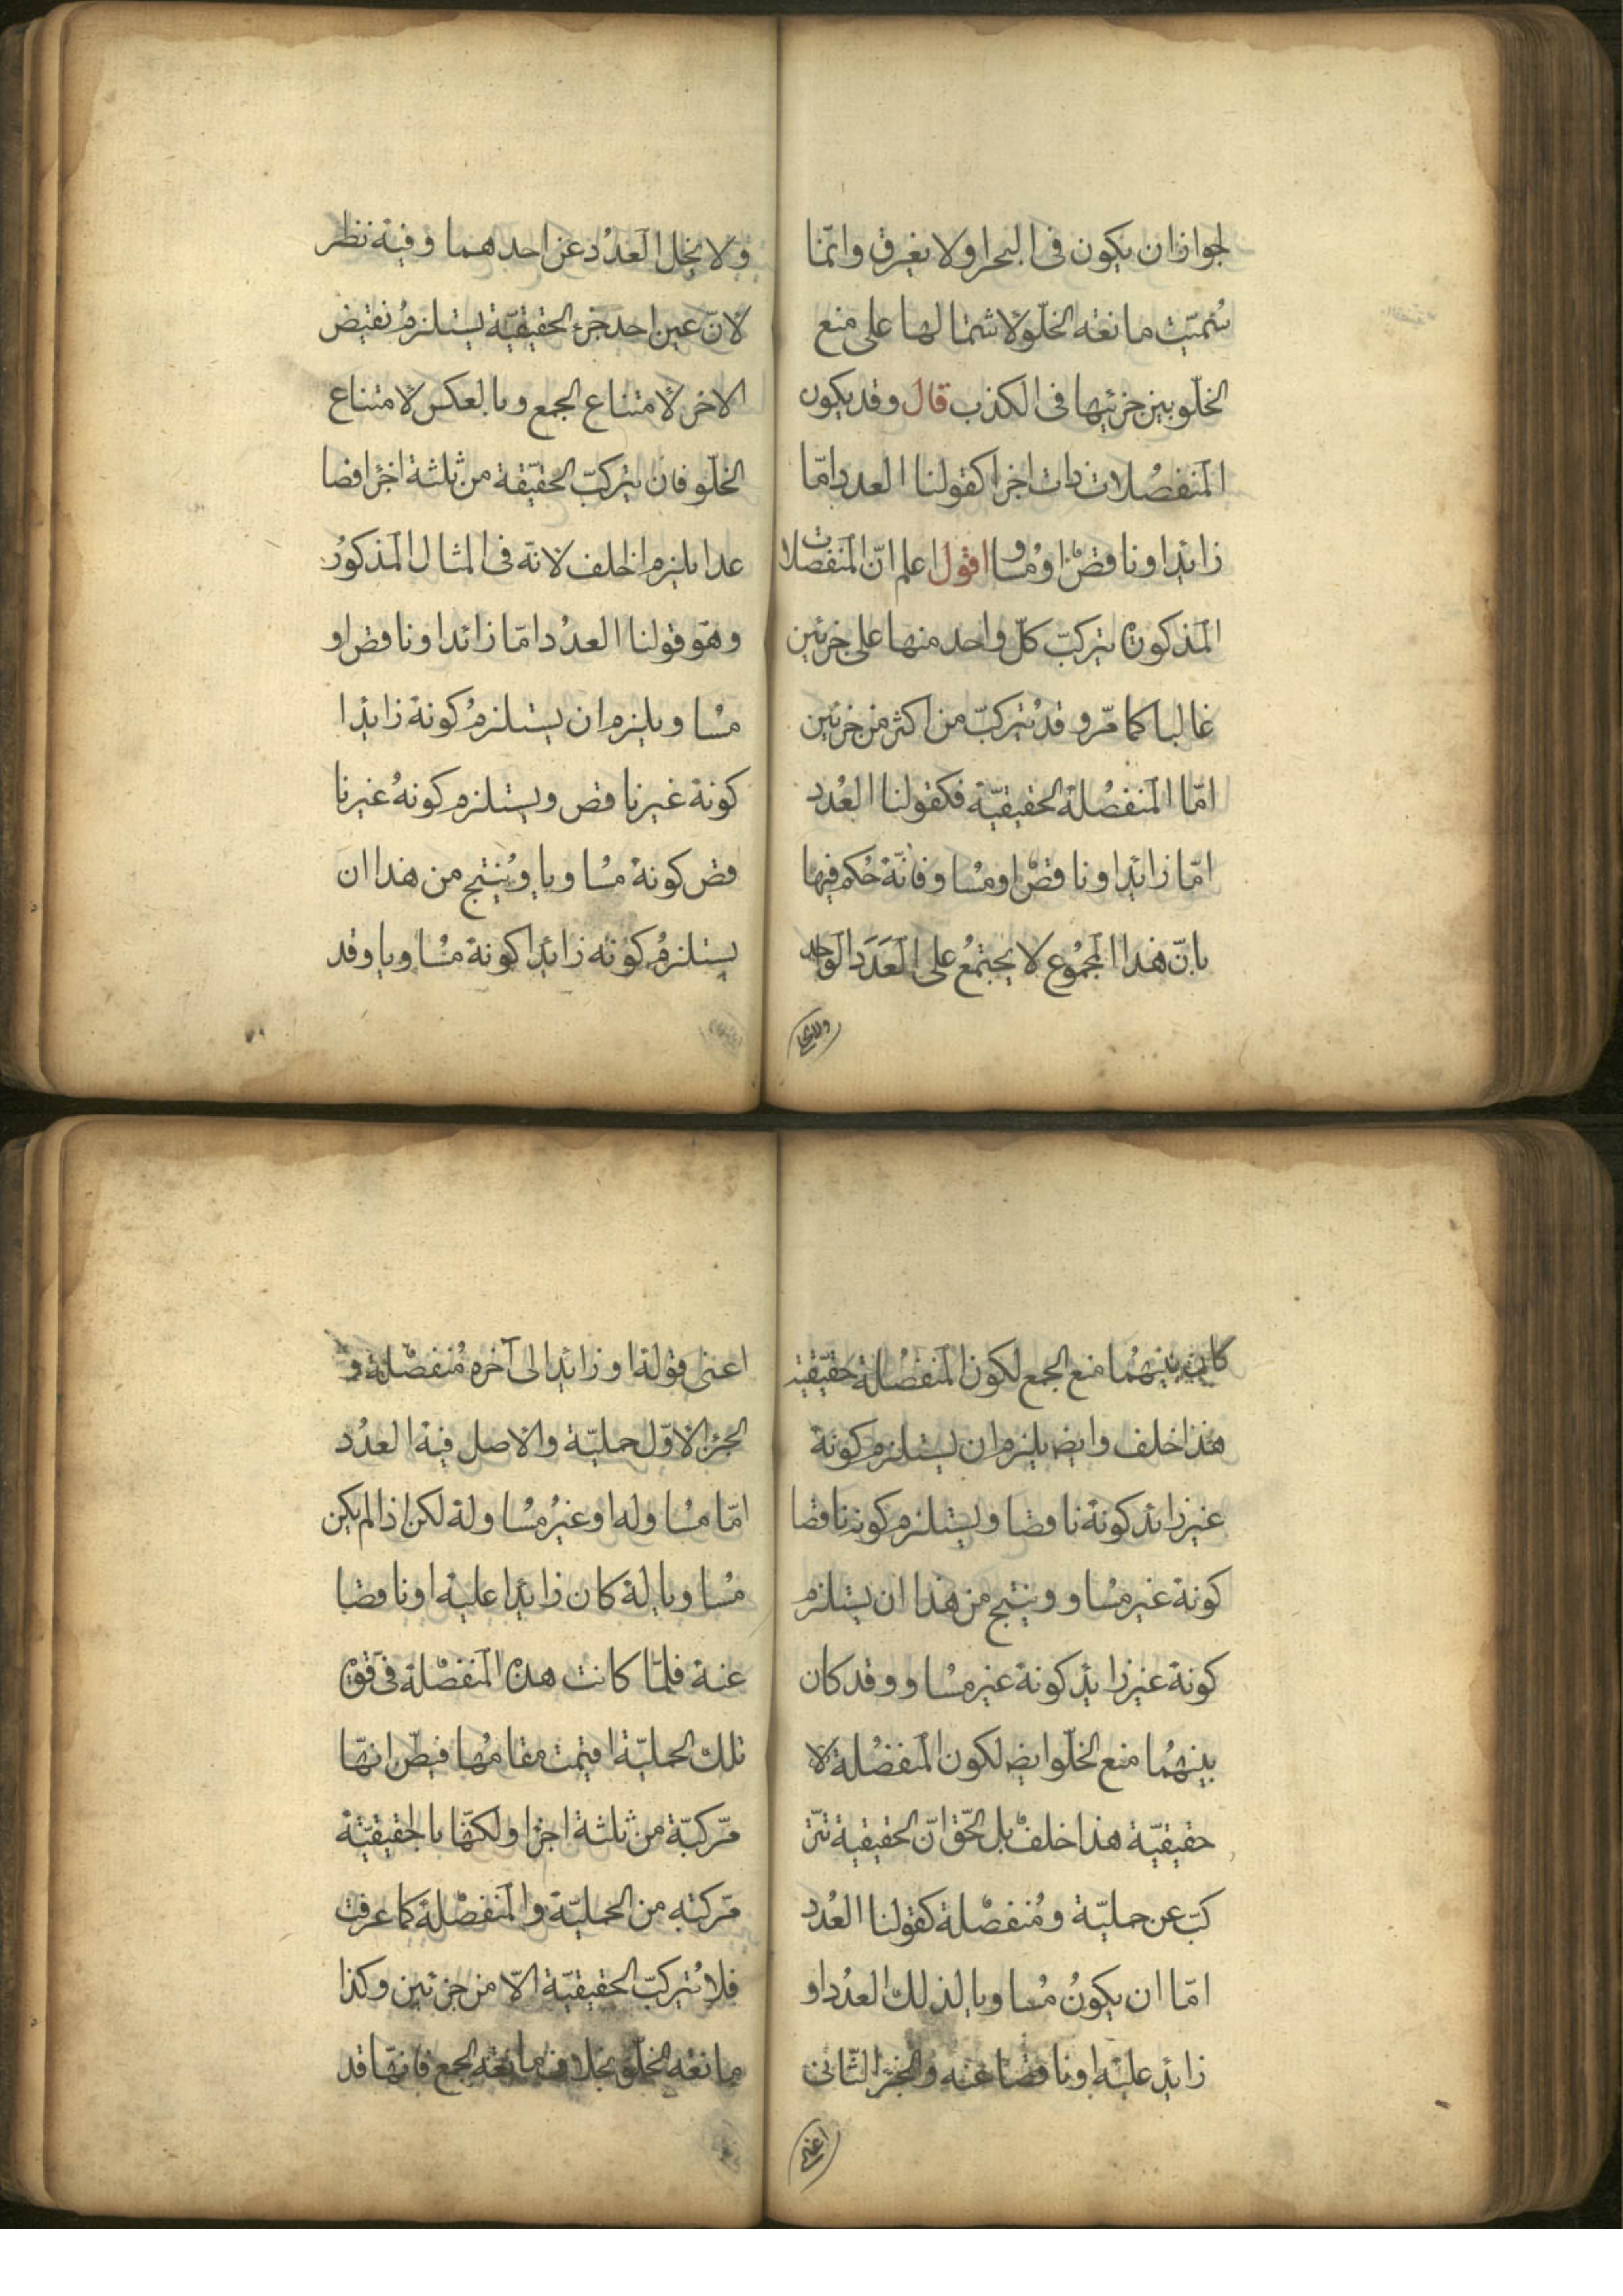 لجواز ان يكون فى البحر او لا يغرق وانّما
سُمّيت مانعة الخلّو لاشتمالها على منع
الخلّو بين جزئيها فى الكذب قال وقد يكون
المنفصلات ذات اجزا كقولنا العدد امّا
زائد او ناقص او مُساو اقول اعلم انّ المنفصلات
المذكورة يتركبّ كلّ واحد منها على جزئين
غالبا كما مرّ وقد يتركبّ من اكثر من جزئين
امّا المنفصلة الحقيقيّة فكقولنا العدد
امّا زائد او ناقص او مُساو فانّه حُكم فيها
بانّ هذا المجمُوع لا يجتمعُ على العَدَد الواحد
ولا يخل
ولا يخل العدد عن احدهما وفيه نظر
لانّ عين احد جزء الحقيقيّة يستلزمُ نقيض
الاخر لامتناع الجمع وبالعكس لامتناع
الخلّو فان يتركبّ الحقيّقة من ثلثة اجزا فصا
عدا يلزم الخلف لانه فى المثال المذكورُ
وهو قولنا العدد امّا زائد او ناقص او
مسُا و يلزم ان يستلزمُ كونه زايدا
كونه غير ناقص ويستلزم كونهُ غيرنا
قص كونه مسُاويا ويُنتج من هذا ان
يستلزمُ كونه زائدا كونه مسُاويا وقد
كانت بينهُما منع الجمع لكون المنفصُلة حقيقيّة
هذا خلف وايضا يلزم ان يستلزم كونه
غير زائد كونه ناقصا ويستلزم كونه ناقصا
كونه غير مسُاو وينتج من هذا ان يستلزم
كونه غير زايد كونه غير مسُاو وقد كان
بينهُما منع الخلّو ايضا لكون المنفصُلة لا
حقيقيّة هذا خلف بل الحّق انّ الحقيقية تتر
كبّ عن حمليّة ومُنفصلة كقولنا العدُد
امّا ان يكونُ مُساويا لذلك العدُد او
زايد عليه او ناقصا عنه والجزء الثّانى
اعنى
اعنى قوله او زائدا الى آخره مُنفصلة و
الجزء الاوّل حمليّة والاصل فيه العدُد
امّا مسُاو له او غيرُ مسُاو له لكن اذا لم يكن
مسُاويا له كان زايدا عليه او ناقصا
عنه فلمّا كانت هذه المنفصلة فى قوة
تلك الحمليّة اقيمت مقامهُا فيظن انهّا
مرّكبّة من ثلثة اجزا ولكنّها بالحقيقيّة
مرّكبّة من الحمليّة والمنفصلة كما عرفت
فلا يُتركبّ الحقيقيّة الاّ من جزئين وكذا
مانعة الخلّو بخلاف مانعة الجمع فانهّا قد